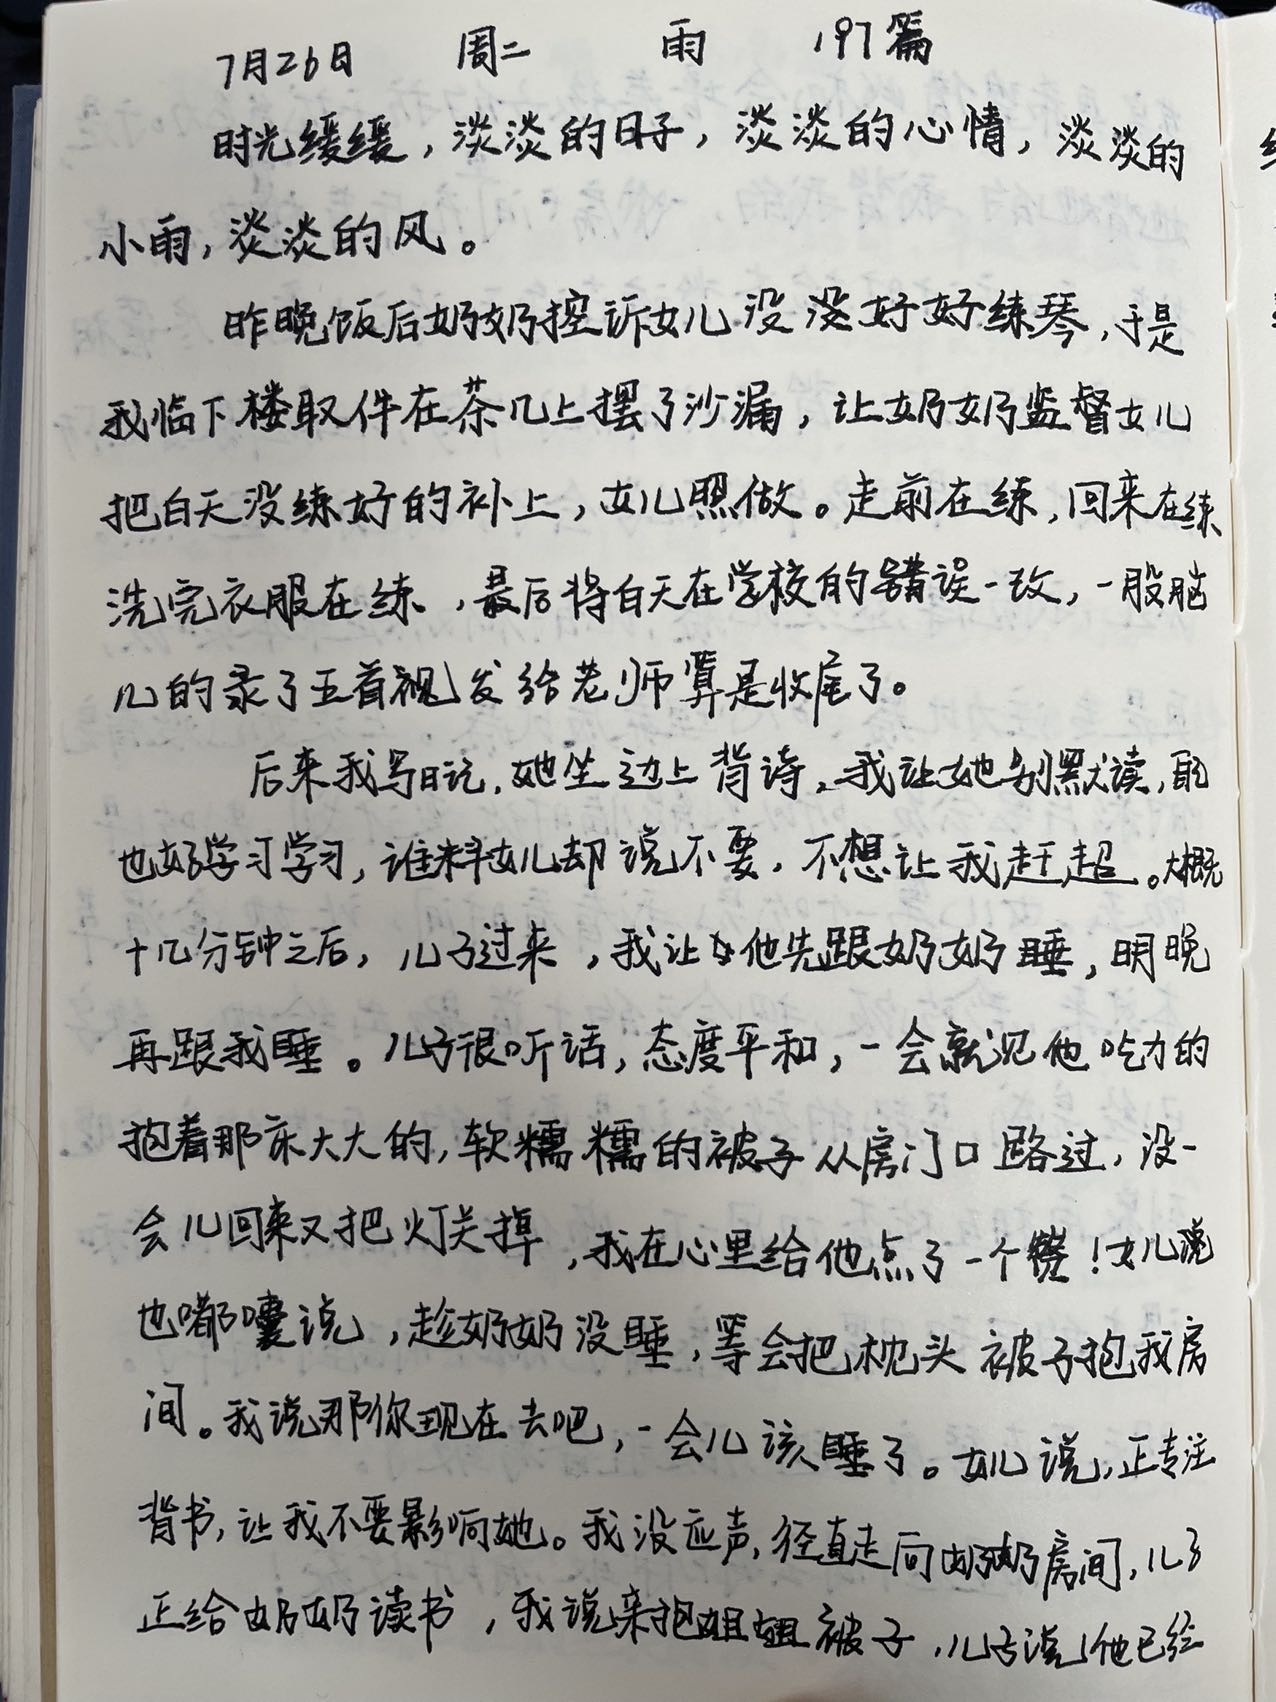 7月26日 周二 雨 197篇
时光缓缓，淡淡的日子，淡淡的心情，淡淡的
小雨，淡淡的风。
昨晚饭后奶奶控诉女儿没没好好练琴，于是
我临下楼取件在茶几上摆了沙漏，让奶奶监督女儿
把白天没练好的补上，女儿照做。走前在练，回来在练
洗完衣服在练，最后将白天在学校的错误一改，一股脑
儿的录了五首视发给老师算是收尾了。
后来我写日记，她坐边上背诗，我让她别默读，
也好学习学习，谁料女儿却说不要，不想让我赶超。大概
十几分钟之后，儿子过来，我让他先跟奶奶睡，明晚
再跟我睡。儿子很听话，态度平和，一会就见他吃力的
抱着那床大大的，软糯糯的被子从房门口路过，没一
会儿回来又把灯关掉，我在心里给他点了一个赞！女儿说
也嘟囔说，趁奶奶没睡，等会把枕头被子抱我房
间。我说那你现在去吧，一会儿该睡了。女儿说，正专注
背书，让我不要影响她。我没应声，径直走向奶奶房间，儿子
正给奶奶读书，我说来抱姐姐被子，儿子说他已经